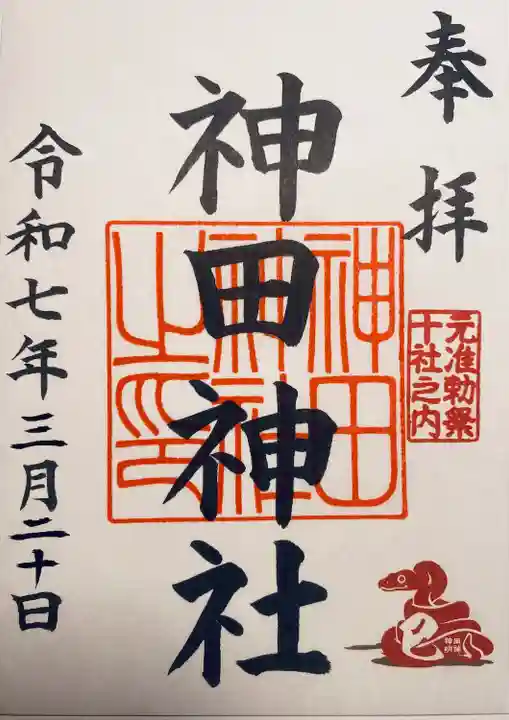 奉拝
元准勅祭
十社之内
神田神社
神田
神社
之印
令和七年三月二十日
巳